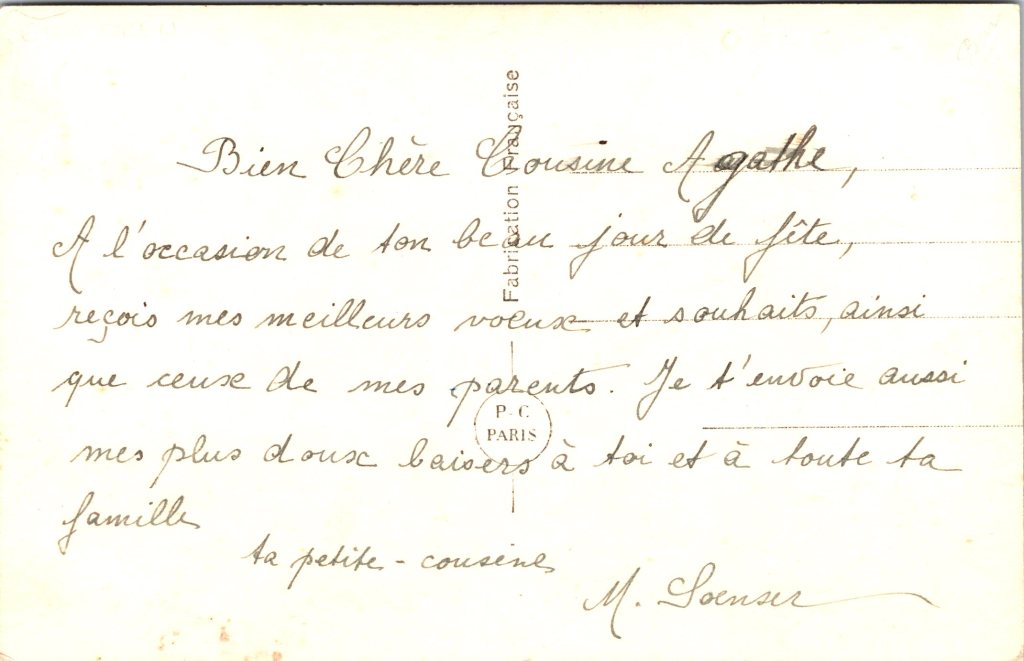 Bien Chère Cousine Agathe,
A l'occasion de ton beau jour de fête,
reçois mes meilleurs voeux et souhaits, ainsi
que ceux de mes parents. Je t'envoie aussi
mes plus doux baisers à toi et à toute ta
famille
ta petite-cousine
M.
Fabrication Française
P-C
PARIS